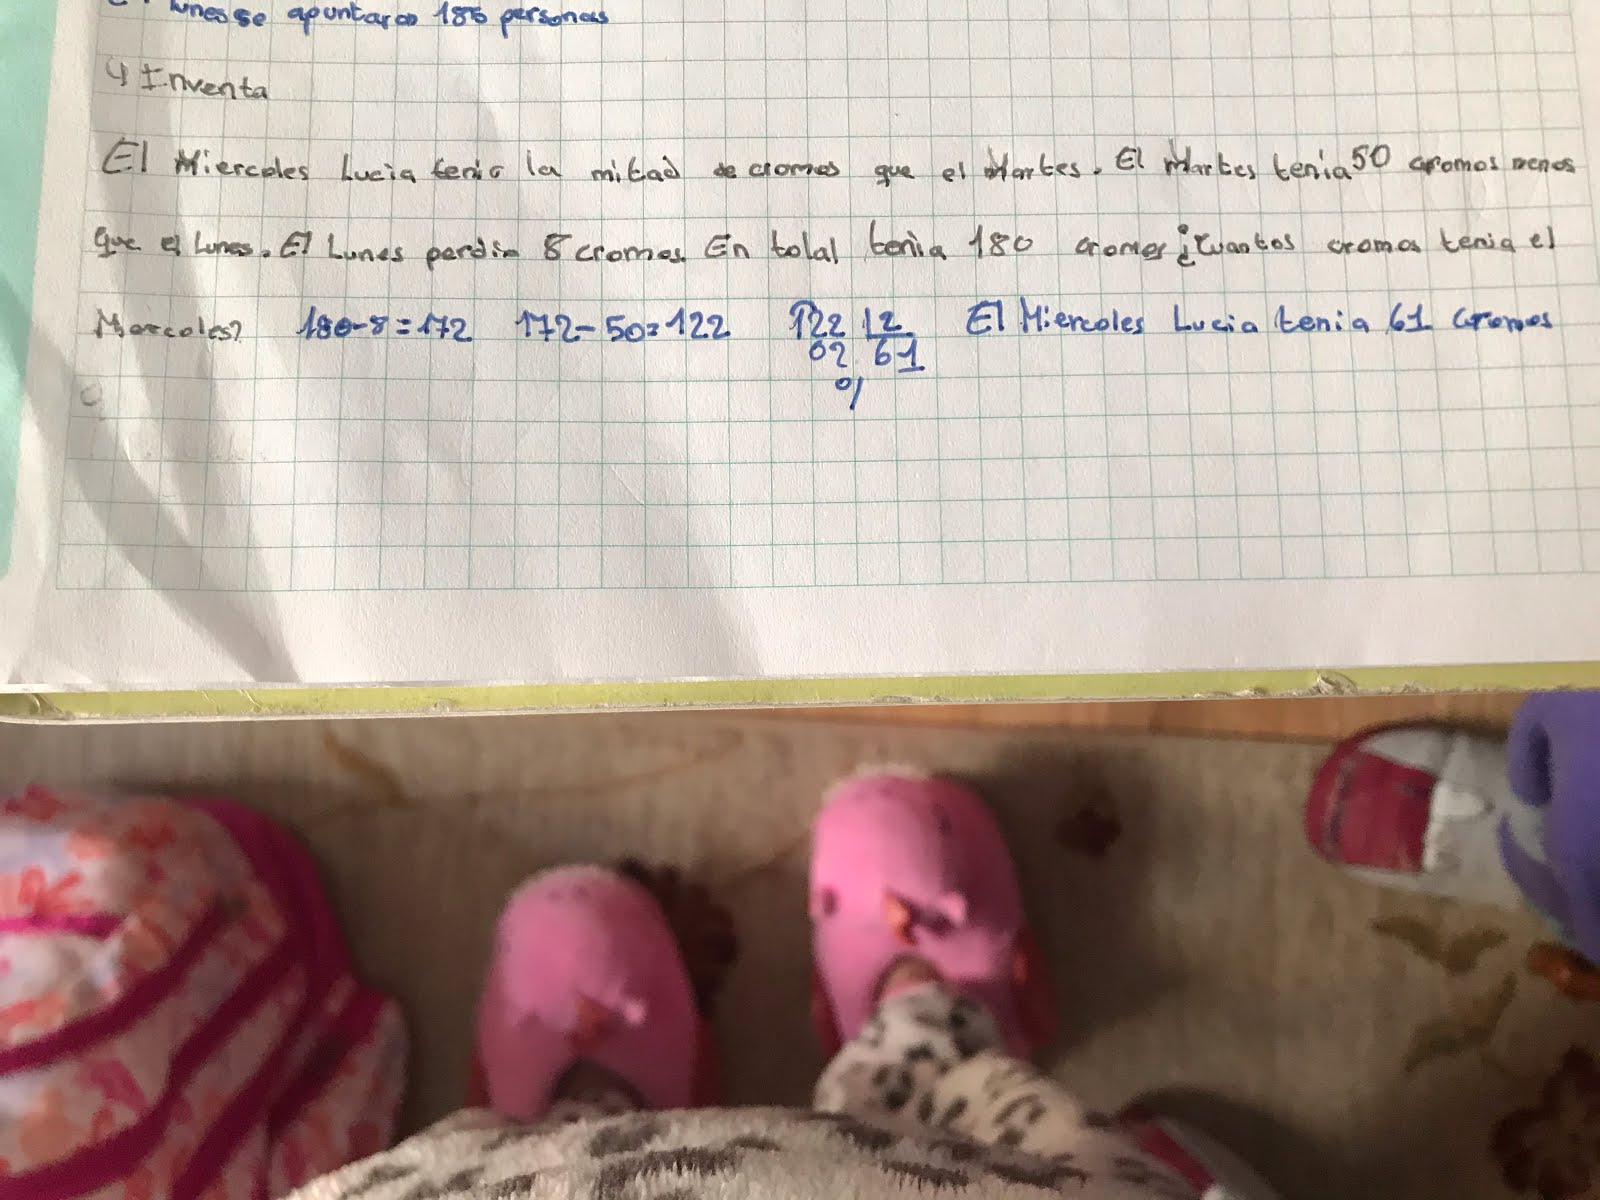 lunes se apuntaron 186 personas
4 Inventa
El Miercoles Lucia tenia la mitad de cromos que el Martes. El Martes tenia 50 cromos menos
que el Lunes. El Lunes perdio 8 cromos. En total tenia 180 cromos ¿Cuantos cromos tenia el
Miercoles? 180-8=172 172-50=122 122 12 El Miercoles Lucia tenia 61 cromos
02 61
0/